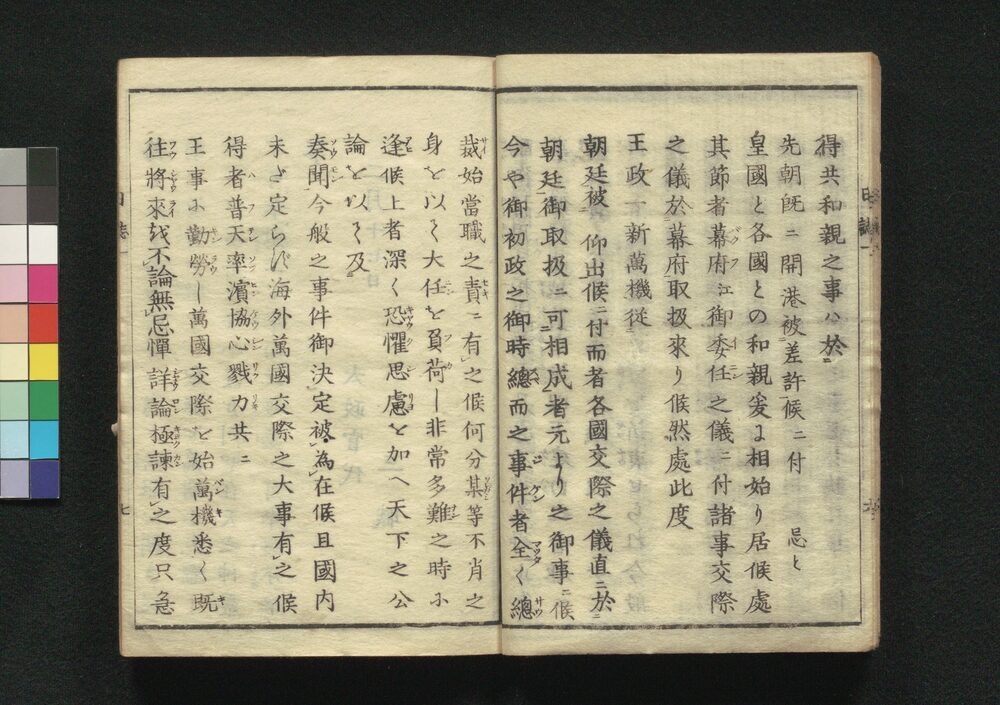 得共和親之事ハ於
先朝旣ニ開港被差許候ニ付 忌と
皇國と各國との和親爰ま相始り居候處
其節者幕府江御委任之儀ニ付諸事交際
之儀於幕府取扱來り候然處此度
王政一新萬機従
朝廷被 仰出候ニ付而者各國交際之儀直ニ於
朝廷御取扱ニ可相成者元より之御事ニ候
今や御初政之御時總而之事件者全く總
裁始當職之責ニ有之候何分某等不肖之
身を以て大任を負荷し非常多難之時ニ
逢候上者深く恐懼思慮を加へ天下之公
論を以て及
奏聞今般之事件御決定被為在候且國内
未だ定らず海外萬國交際之大事有之候
得者普天率濱協心戮力共ニ
王事ニ勤勞し萬國交際を始萬機悉く既
往將來を不論無忌憚詳論極諫有之度只急